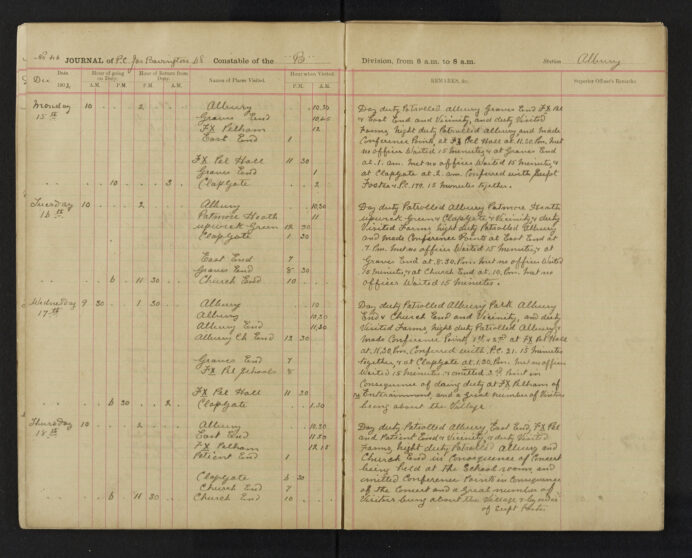 No 46 JOURNAL of P.C. Jas Constable of the B Division, from 8 a.m. to 8 a.m. Station Albury
Date. Hour of going on Duty. Hour of Return from Duty. Names of Places Visited. Hour when Visited. REMARKS, &c. Superior Officer's Remarks
Dec 190
A.M. P.M. P.M. A.M. P.M. A.M.
Monday 10 2 Albury 10.30
15th Graves End 10.45
Fx Pelham 12
East End 1
Fx Pel Hall 11 30
Graves End 1
10 3 Clapgate 2
Day duty Patrolled Albury Graves End Fx Pel
& East End and Vicinity, and duty Visited
Farms, night duty Patrolled Albury and made
Conference Points at Fx Pel Hall at 11.30 P.m. Met
no officer Waited 15 minutes, & at Graves End
at 1. a.m. met no officer Waited 15 minutes, &
at Clapgate at 2. a.m. Conferred with Supt
Foster & P.C. 179. 15 minutes together.
Tuesday 10 2 Albury 10.30
16th Patmore Heath 11
upwick Green 12 30
Clapgate 1 30
East End 7
Graves End 8 30
6 11 30 Church End 10
Day duty Patrolled Albury Patmore Heath
upwick Green & Clapgate & Vicinity & duty
Visited Farms, night duty Patrolled Albury
and made Conference Points at East End at
7 P.m. met no officer Waited 15 minutes, & at
Graves End at 8.30. P.m. met no officer Waited
10 minutes, & at Church End at 10. P.m. met no
officer Waited 15 minutes.
Wednesday 9 30 1 30 Albury 10
17th Albury 10.30
Albury End 11.30
Albury Ch End 12 30
Graves End 7
Fx Pel Schools 8
Fx Pel Hall 11 30
6 30 2 Clapgate 1.30
Day duty Patrolled Albury Park Albury
End & Church End and Vicinity, and duty
Visited Farms, night duty Patrolled Albury &
made Conference Points, 1st & 2nd at Fx Pel Hall
at 11.30 P.m. Conferred with P.C. 21. 15 minutes
together, & at Clapgate at 1.30. Met no officer
Waited 15 minutes. & omitted 3rd Point in
Consequence of doing duty at Fx Pelham of
Entertainment, and a great number of Visitors
being about the Village.
Thursday 10 2 Albury 10.30
18th East End 11.30
Fx Pelham 12.15
Patient End 1
Clapgate 6 30
Church End 7
6 11 30 Church End 10
Day duty Patrolled Albury East End, Fx Pel
and Patient End & Vicinity, & duty Visited
Farms, night duty Patrolled Albury and
Church End in Consequence of Concert
being held at the School room, and
omitted Conference Points in Consequence
of the Concert and a Great number of
Visitors being about the Village & by order
of Supt Foster